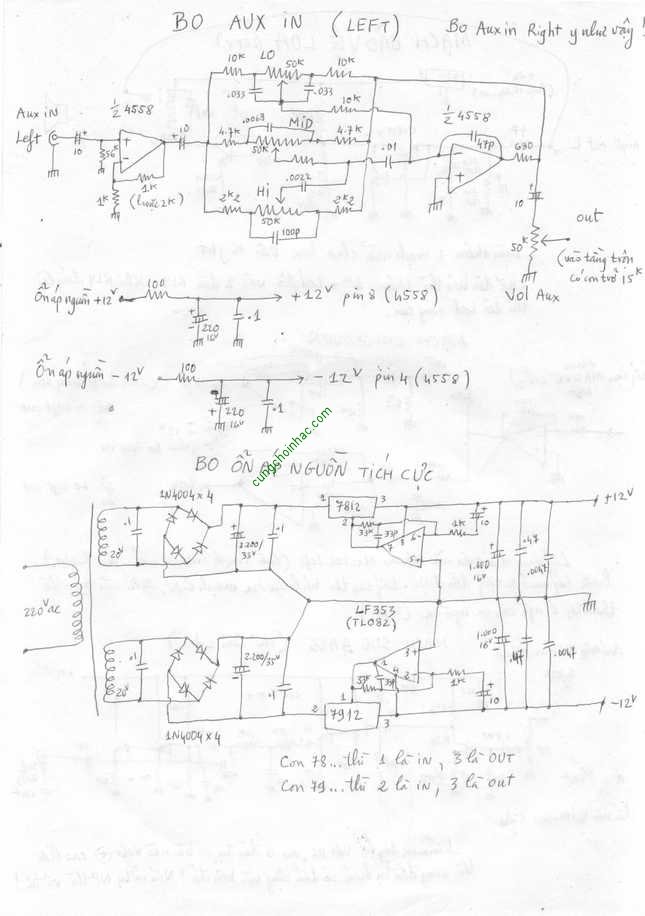 BO AUX IN (LEFT)
Bo Aux in Right y như vậy !
10K LO 50K 10K
.033 .033
10K
Aux iN
Left
1/2 4558
10
56K
10
1K
1K
(hoặc 2K)
.0068 MiD
4.7K 50K 4.7K
.01
.0022
Hi
2K2 50K 2K2
100p
1/2 4558
47p
680
10
50K
out
(vào tầng trộn
có con trở 15K
Vol Aux
Ổn áp nguồn +12V 100 +12V pin 8 (4558)
220
16V
.1
Ổn áp nguồn -12V 100 -12V pin 4 (4558)
220
16V
.1
cungchoinhac.com
BO ỔN ÁP NGUỒN TÍCH CỰC
1N4004 x 4
.1
20V
2.200/
35V
.1
1 7812 3
2
33K 33p
7 8 6 -
5 +
1K 10
1.000
16V
.47
.0047
+12V
220V ac
LF353
(TL082)
.1
20V
2.200/35V
.1
1N4004 x 4
2 7912 3
1
33p
1 4 3 +
2 -
1K
10
1.000
16V
.47
.0047
-12V
Con 78... thì 1 là iN, 3 là OUT
Con 79... thì 2 là iN, 3 là out